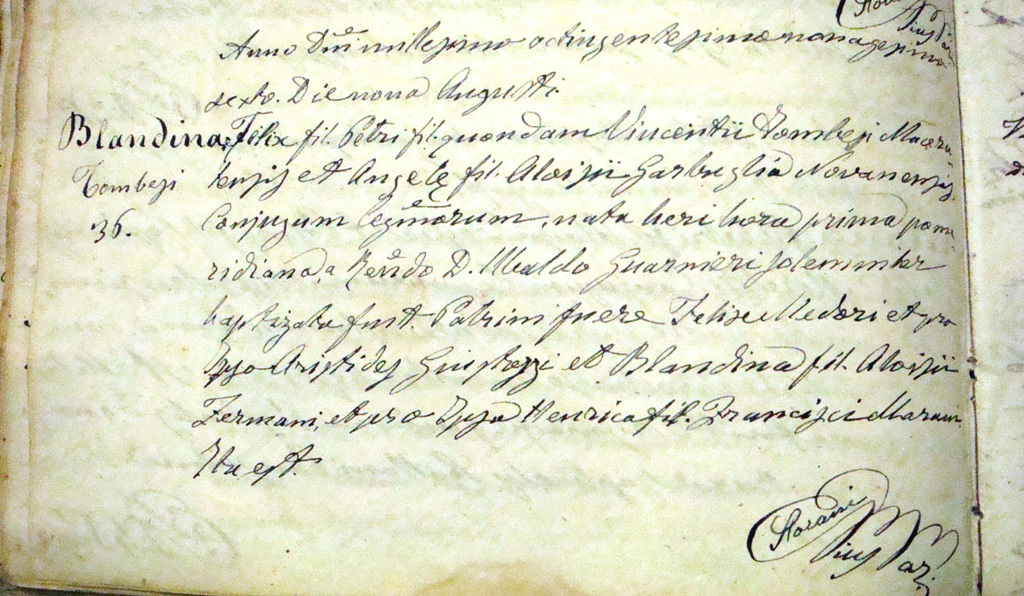 Anno Dñi millesimo octingentesimo nonagesimo
sexto. Die nona Augusti.
Blandina, Felix fil. Petri fil. quondam Vincentii Tombesi Macera-
Tombesi
tensis et Angelę fil. Aloisii Garbuglia Novanensis,
36.
Conjugum legmorum, nata heri hora prima pome-
ridiana, a Revdo D. Ubaldo Guarnieri solemniter
baptizata fuit. Patrini fuere Felix Medori et pro
ipso Aristides Giustozzi et Blandina fil. Aloisii
Fermani, et pro ipsa Henrica fil. Francisci
Ita est.
Pius Par.